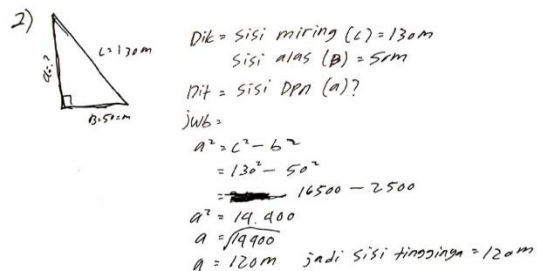 2)
c=130m
a=?
B=50m
Dik = sisi miring (c) = 130m
sisi alas (B) = 50m
Dit = sisi Dpn (a)?
jwb =
a² = c² - b²
= 130² - 50²
= 16500 - 2500
a² = 14.400
a = √14400
a = 120m jadi sisi tingginga = 120m